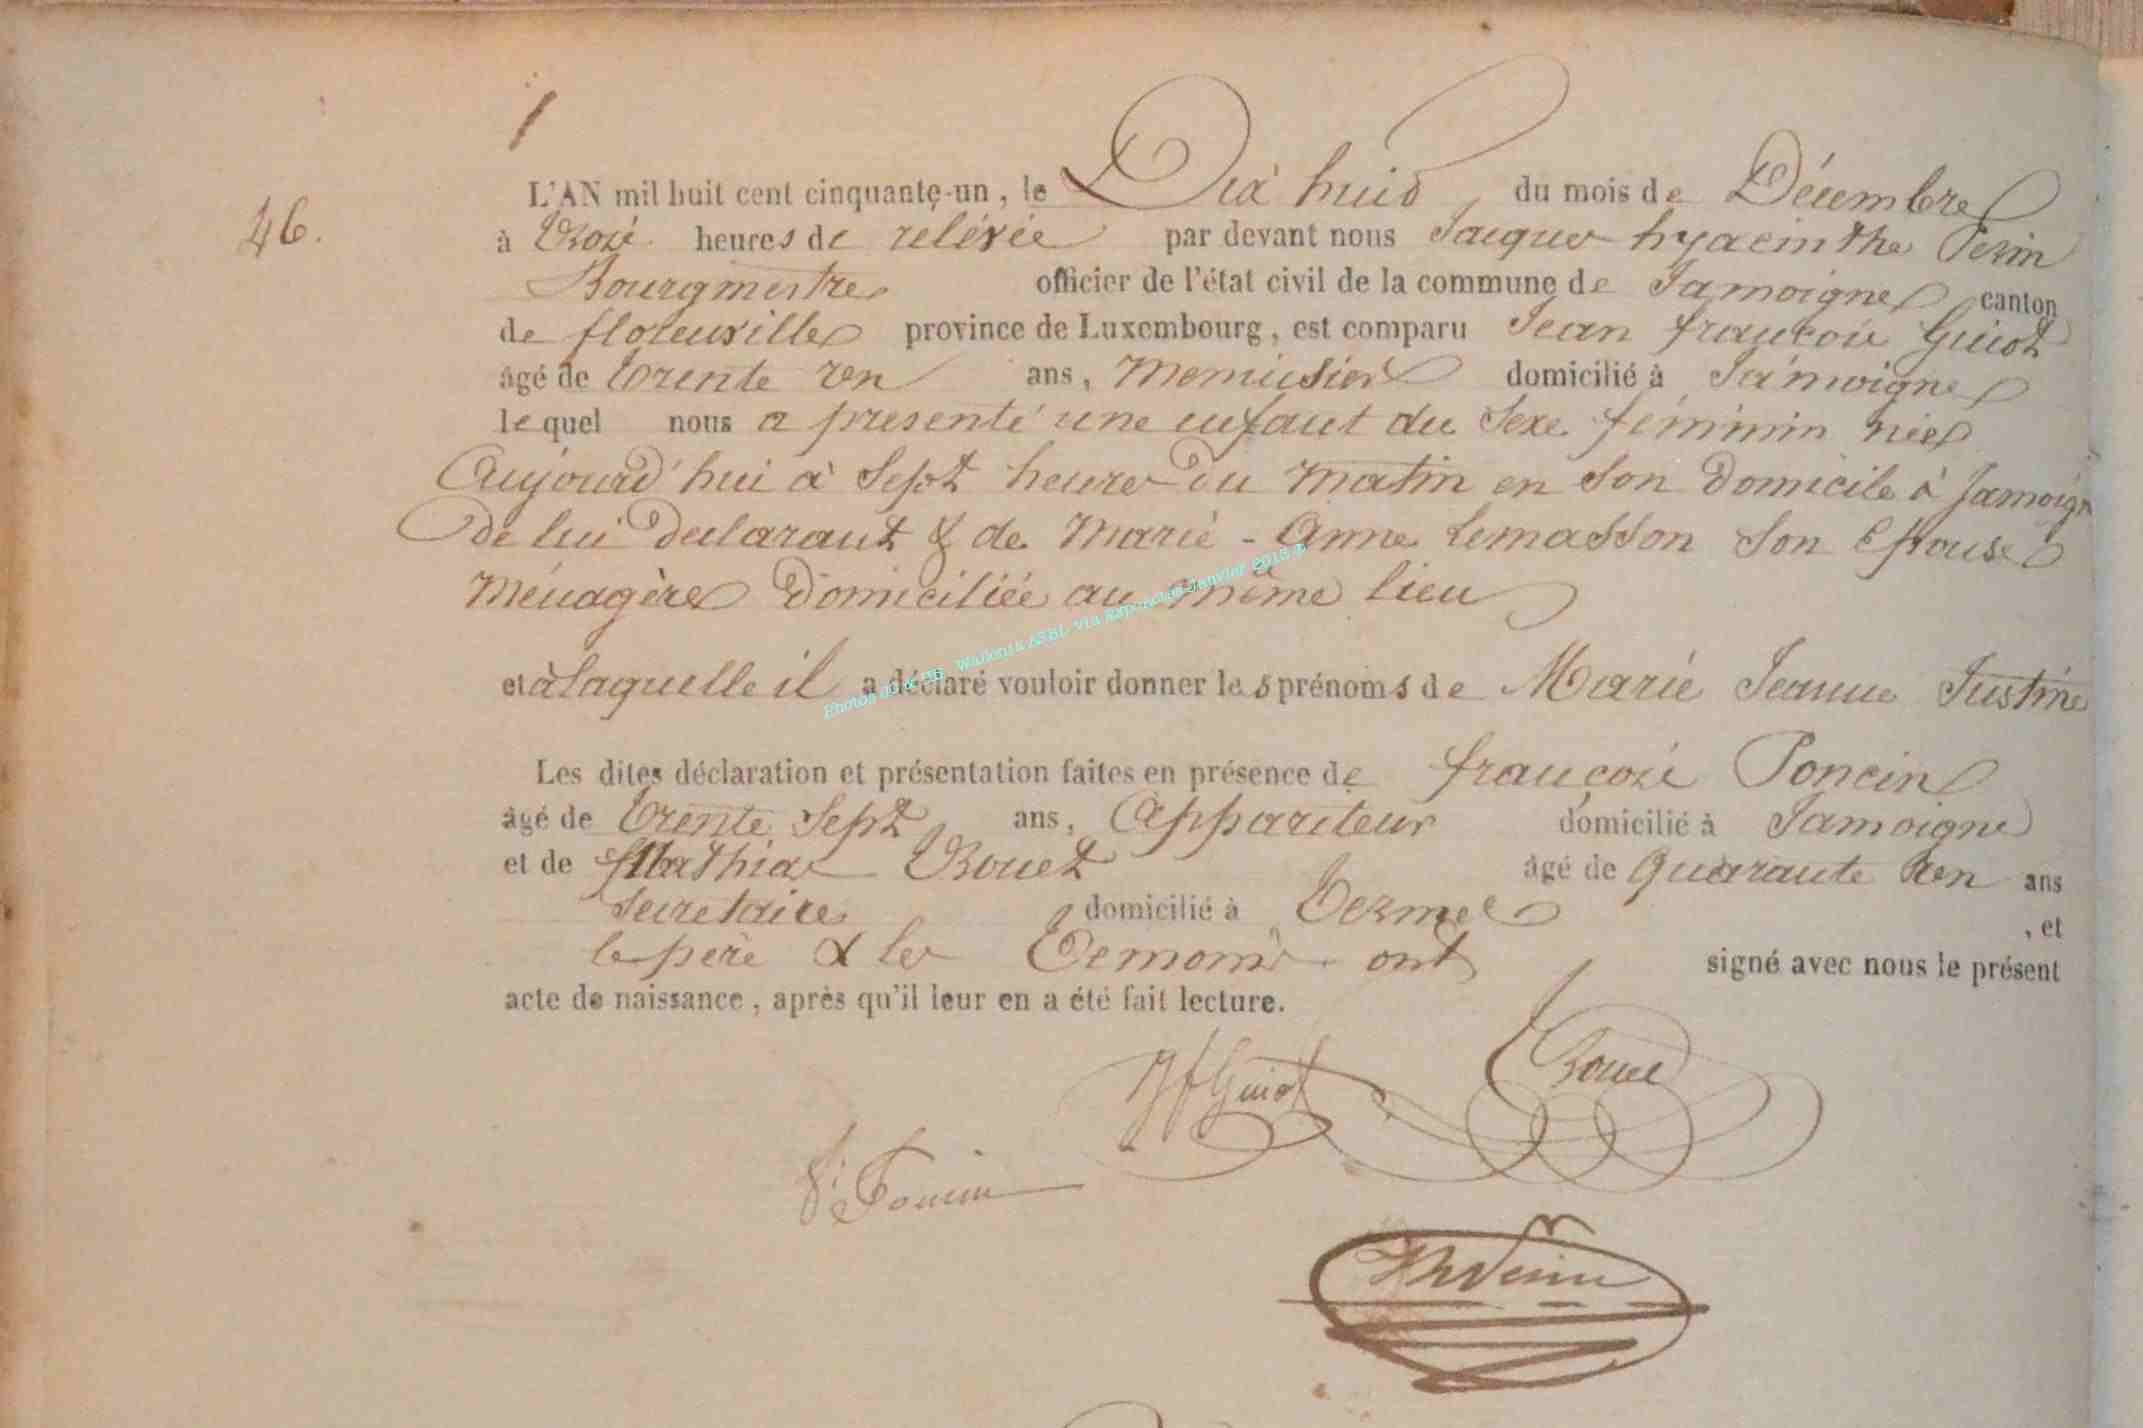 46.
L'AN mil huit cent cinquante-un, le Dix huit du mois de Décembre
à trois heures de relévée par devant nous Jacques hyacinthe
Bourgmestre officier de l'état civil de la commune de Jamoigne canton
de florenville province de Luxembourg, est comparu Jean françois Guiot
âgé de trente un ans, menuisier domicilié à Jamoigne
lequel nous a presenté une enfant du Sexe féminin née
Aujourd'hui à Sept heures du matin en son Domicile à Jamoigne
De lui declarant & de Marie - Anne Lemasson son Epouse
Ménagère Domiciliée au même lieu
et à laquelle il a déclaré vouloir donner les prénoms de Marie Jeanne Justine
Les dites déclaration et présentation faites en présence de françois Poncin
âgé de trente Sept ans, Appariteur domicilié à Jamoigne
et de Mathias âgé de Quarante un ans
Secretaire domicilié à Termes
, et
le père & les Temoins ont signé avec nous le présent
acte de naissance, après qu'il leur en a été fait lecture.
JfGuiot
f. Poncin